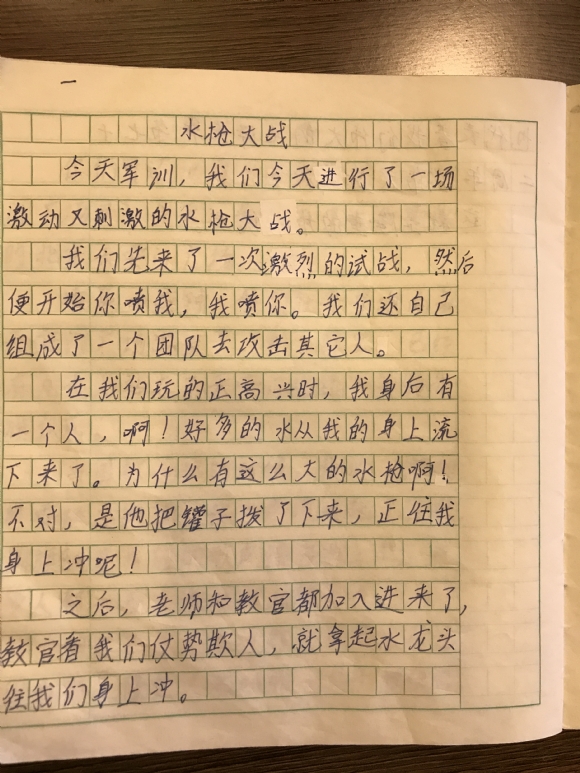 一
水枪大战
今天军训，我们今天进行了一场
激动又刺激的水枪大战。
我们先来了一次激烈的试战，然后
便开始你喷我，我喷你。我们还自己
组成了一个团队去攻击其它人。
在我们玩的正高兴时，我身后有
一个人，啊！好多的水从我的身上流
下来了。为什么有这么大的水枪啊！
不对，是他把罐子拨了下来，正往我
身上冲呢！
之后，老师和教官都加入进来了，
教官看我们仗势欺人，就拿起水龙头
往我们身上冲。